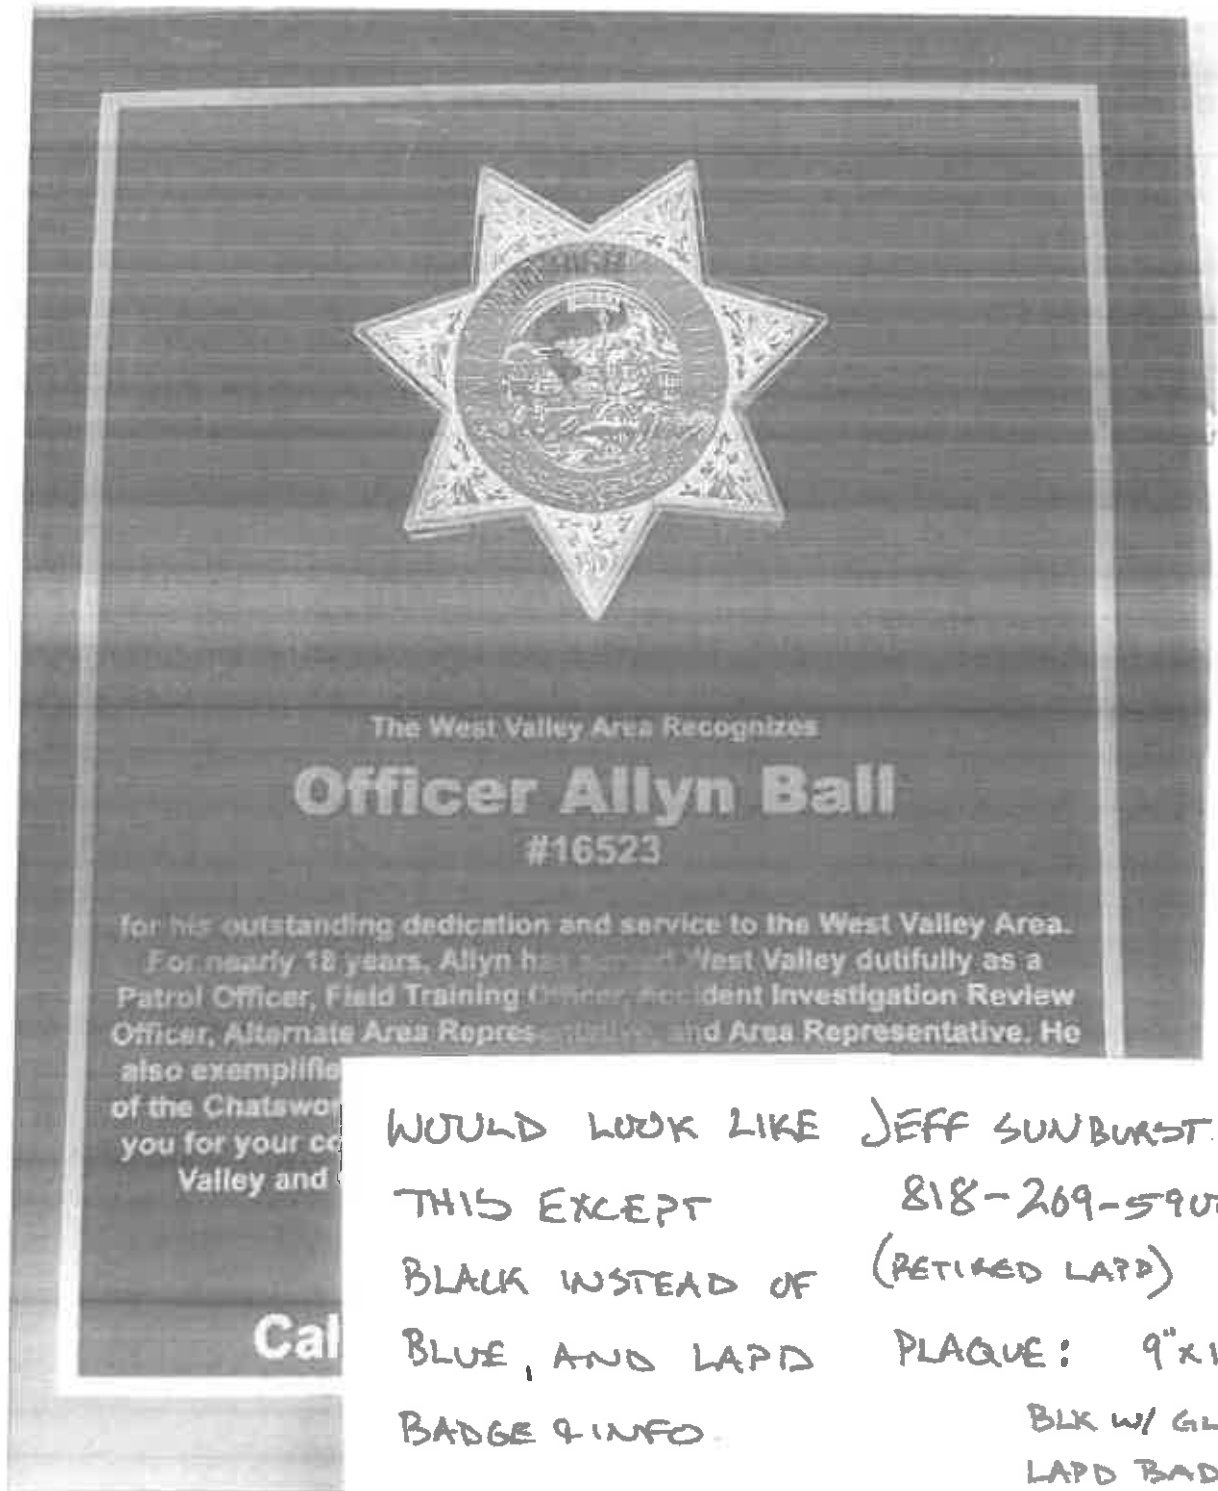 The West Valley Area Recognizes
Officer Allyn Ball
#16523
for his outstanding dedication and service to the West Valley Area.
For nearly 18 years, Allyn has served West Valley dutifully as a
Patrol Officer, Field Training Officer, Accident Investigation Review
Officer, Alternate Area Representative, and Area Representative. He
also exemplifie
of the Chatswor
you for your co
Valley and
Cal
WOULD LOOK LIKE
THIS EXCEPT
BLACK INSTEAD OF
BLUE, AND LAPD
BADGE & INFO
JEFF SUNBURST
818-209-590
(RETIRED LAPD)
PLAQUE: 9"x1
BLK W/ GL
LAPD BAD